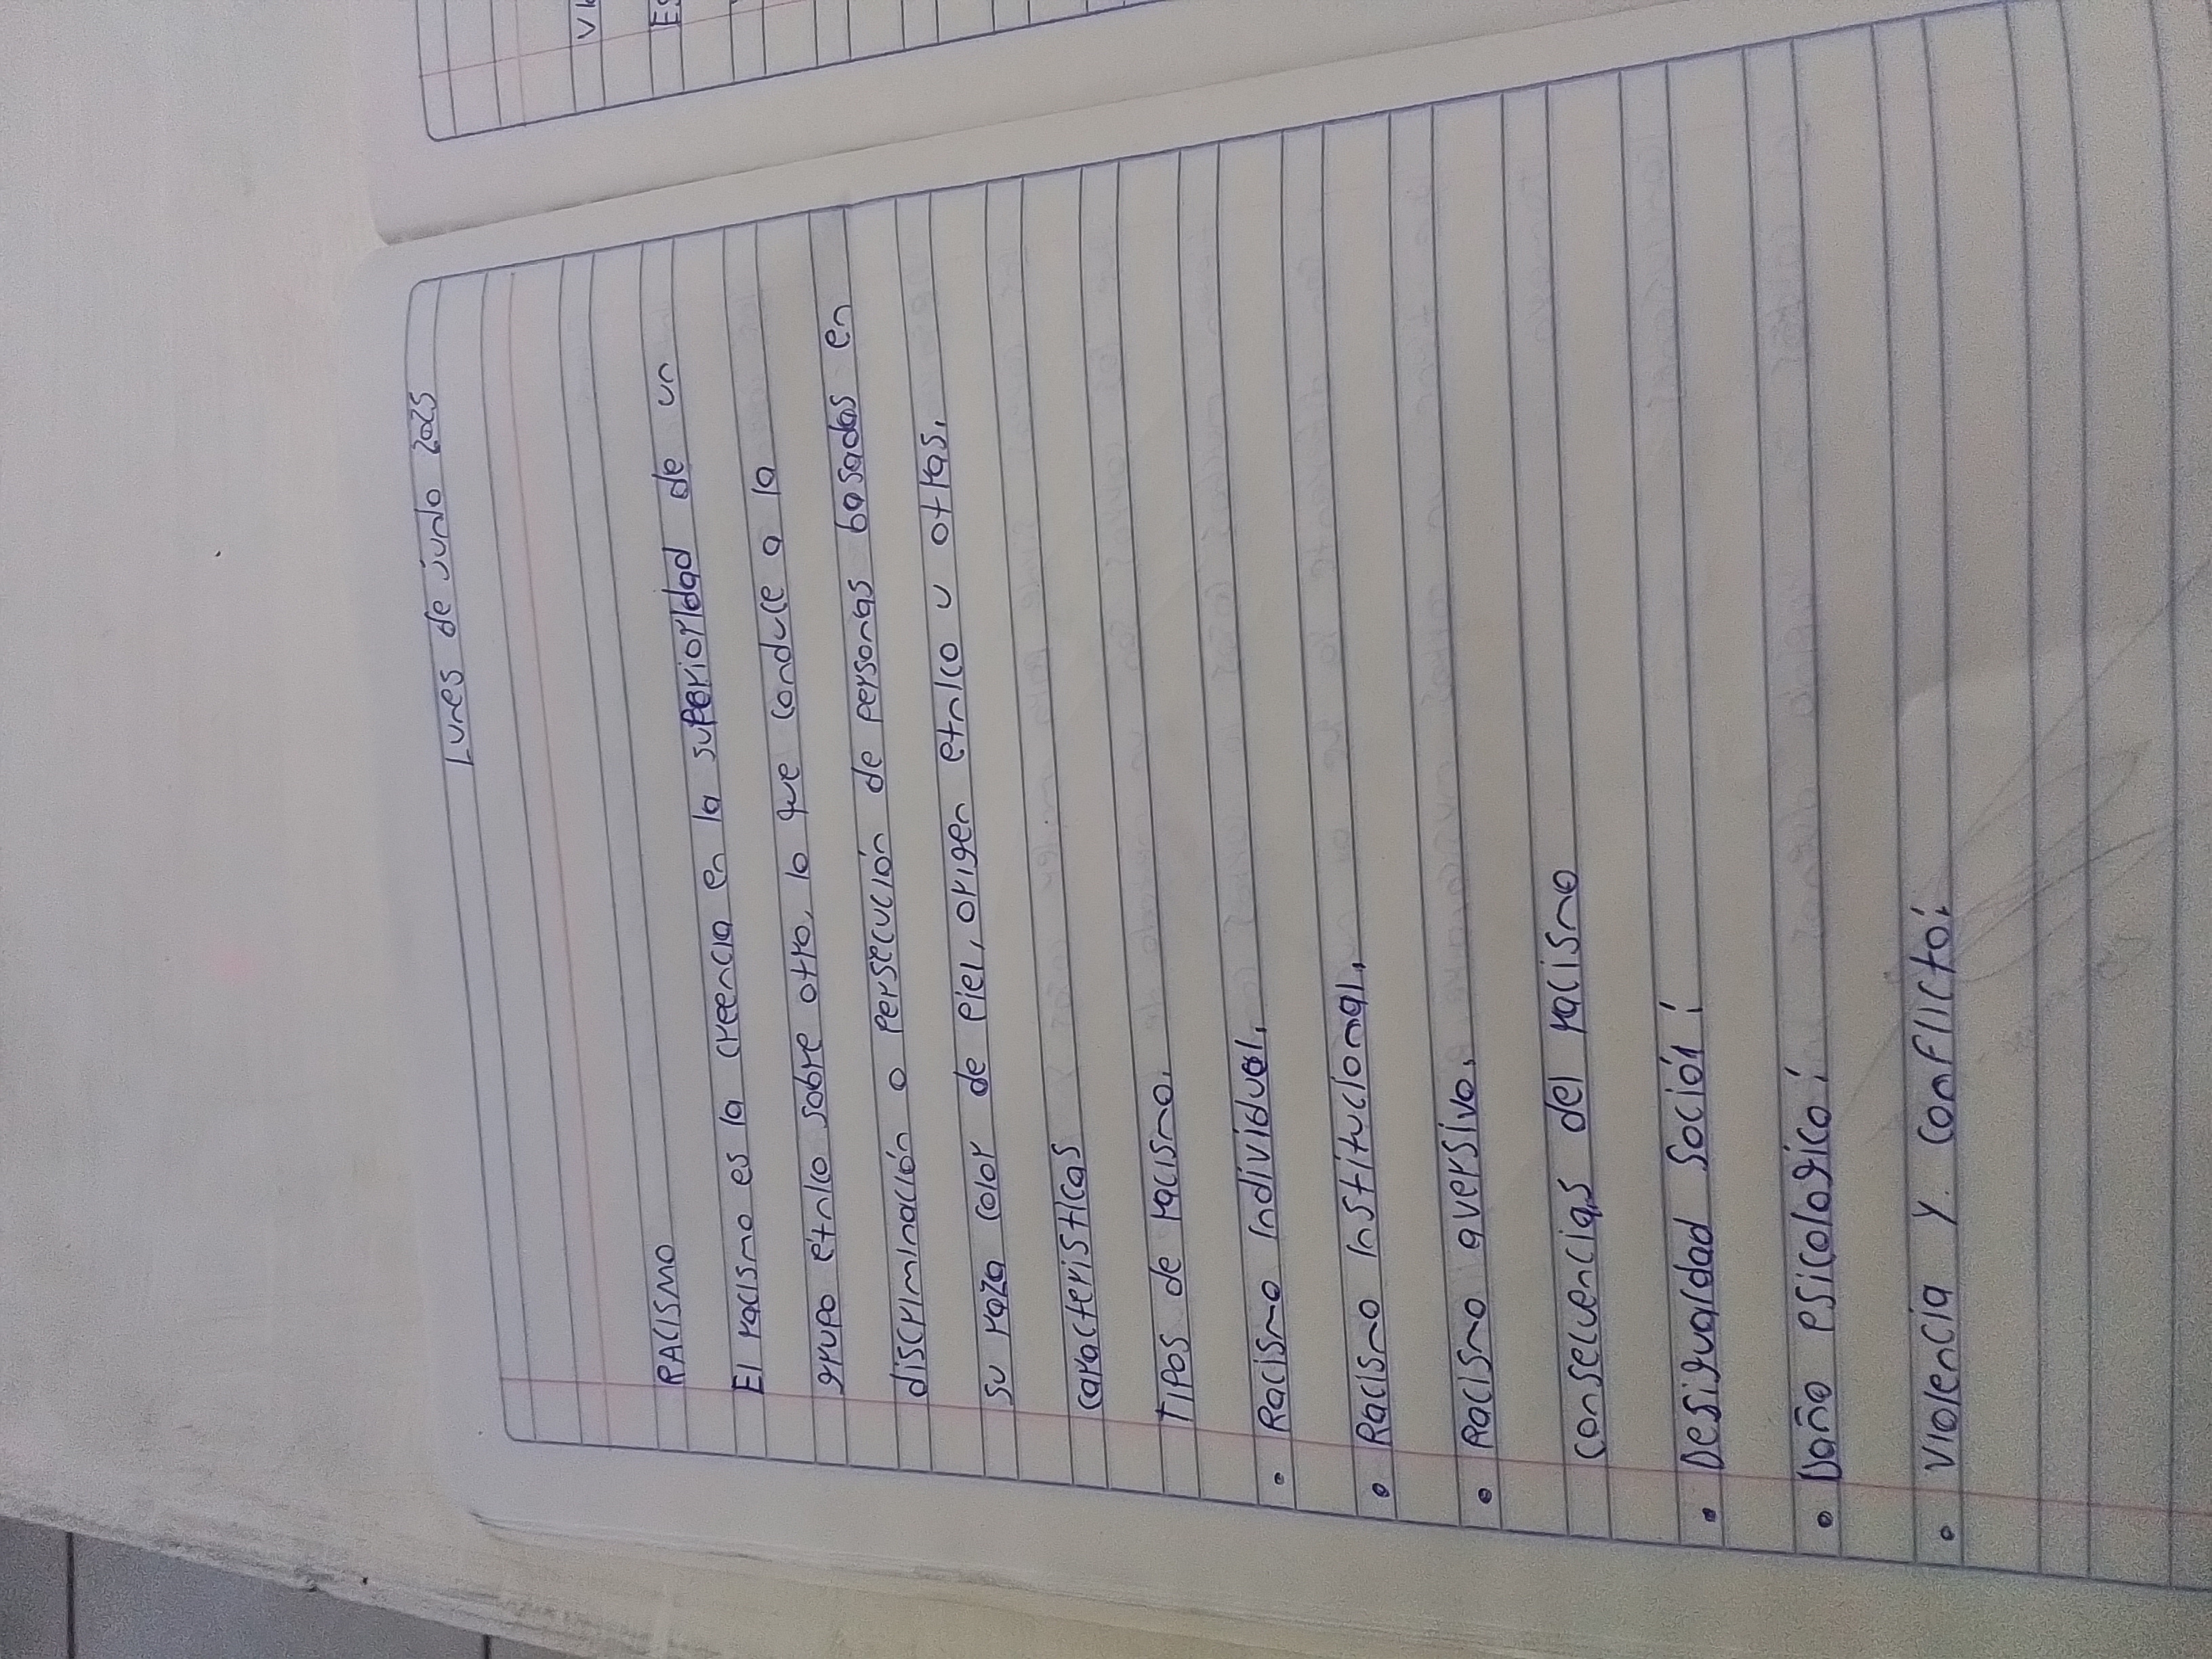 Lunes de junio 2025
RACISMO
El racismo es la creencia en la superioridad de un
grupo étnico sobre otro, lo que conduce a la
discriminación o persecución de personas basadas en
su raza color de piel, origen etnico u otras.
caracteristicas
Tipos de racismo.
• Racismo individual.
• Racismo institucional.
• Racismo aversivo.
consecuencias del racismo
• Desigualdad Social:
• Daño psicologico:
• Violencia y conflicto: